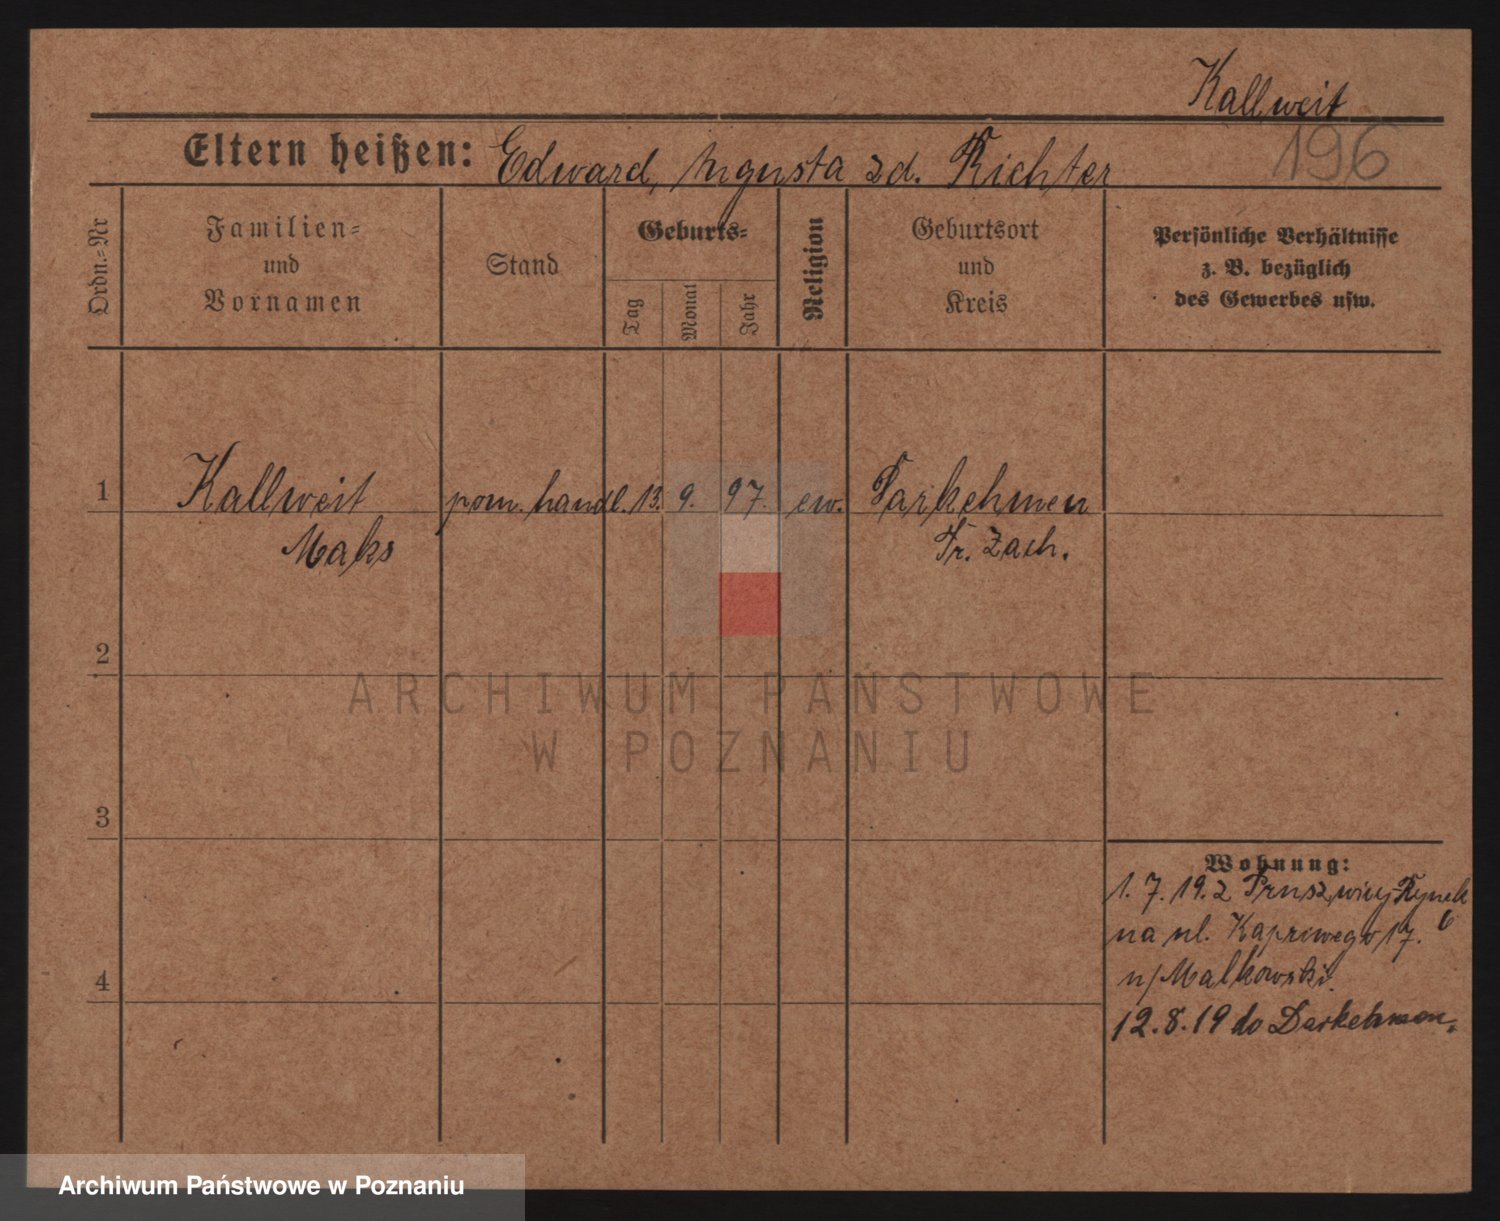 Kallweit
196
Eltern heißen: Edward, Augusta zd. Richter
Ordn.-Nr
Familien-
und
Vornamen
Stand
Geburts-
Tag
Monat
Jahr
Religion
Geburtsort
und
Kreis
Persönliche Verhältnisse
z. B. bezüglich
des Gewerbes usw.
1 Kallweit pom. handl. 13. 9. 97. ew. Tarkehmen
Maks Fr. Zach.
2
ARCHIWUM PAŃSTWOWE
W POZNANIU
3
Wohnung:
1. 7. 19. z Rynek 6
na ul. Kapriwego 17.
n/Malkowski.
4
12.8.19 do Darkehmen.
Archiwum Państwowe w Poznaniu